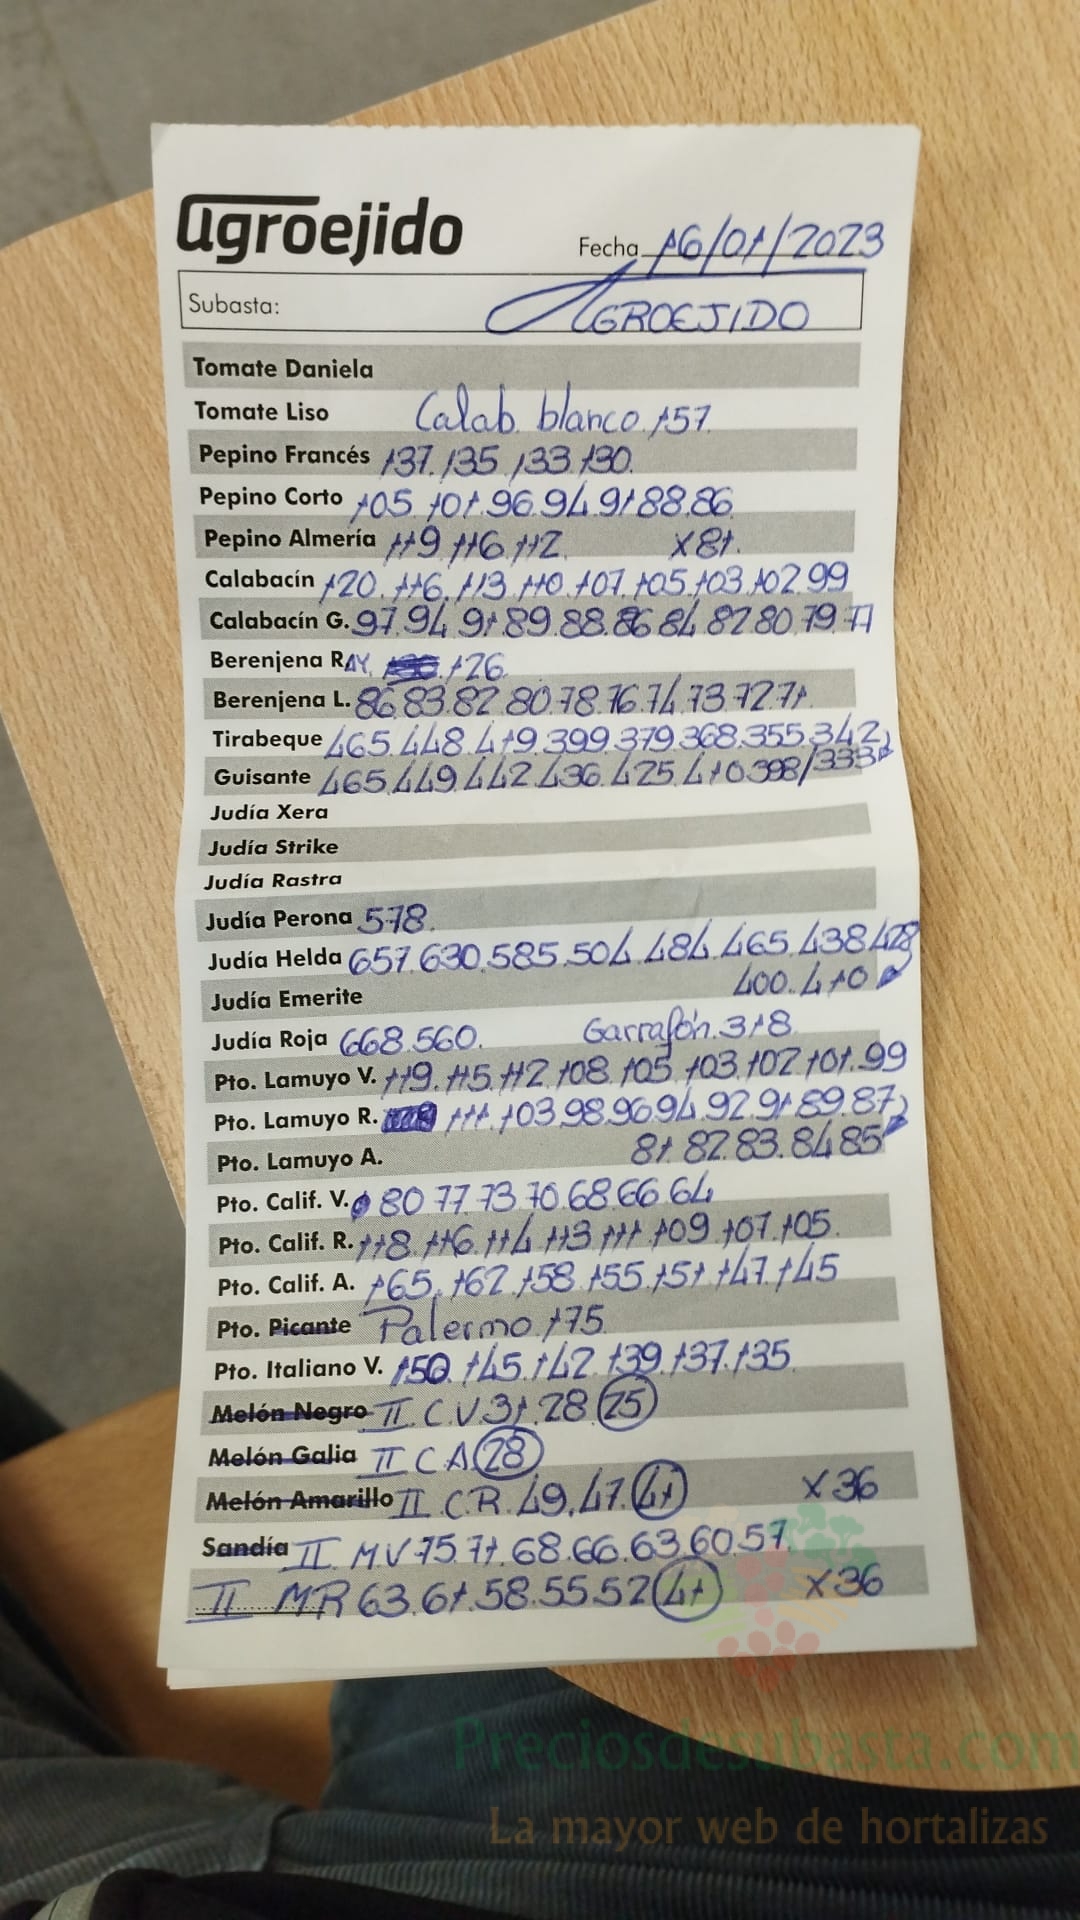 agroejido
Fecha 16/01/2023
Subasta: AGROEJIDO
Tomate Daniela
Tomate Liso Calab. blanco. 157.
Pepino Francés 137. 135. 133. 130.
Pepino Corto 105. 101. 96. 94. 91. 88. 86.
Pepino Almería 119. 116. 112. X81.
Calabacín 120. 116. 113. 110. 107. 105. 103. 102. 99
Calabacín G. 97. 94. 91. 89. 88. 86. 84. 82. 80. 79. 77
Berenjena RAY. 126.
Berenjena L. 86. 83. 82. 80. 78. 76. 74. 73. 72. 71.
Tirabeque 465. 448. 419. 399. 379. 368. 355. 342
Guisante 465. 449. 442. 436. 425. 410. 398/333
Judía Xera
Judía Strike
Judía Rastra
Judía Perona 578.
Judía Helda 657. 630. 585. 504. 484. 465. 438. 428
Judía Emerite 400. 410
Judía Roja 668. 560. Garrafón. 318.
Pto. Lamuyo V. 119. 115. 112. 108. 105. 103. 102. 101. 99
Pto. Lamuyo R. 111. 103. 98. 96. 94. 92. 91. 89. 87
Pto. Lamuyo A. 81. 82. 83. 84. 85
Pto. Calif. V. 80. 77. 73. 70. 68. 66. 64
Pto. Calif. R. 118. 116. 114. 113. 111. 109. 107. 105.
Pto. Calif. A. 165. 162. 158. 155. 151. 147. 145
Pto. Picante Palermo. 175.
Pto. Italiano V. 150. 145. 142. 139. 137. 135.
Melón Negro II C.V 31. 28. 25
Melón Galia II C A 28
Melón Amarillo II C.R. 49. 47. 41 X36
Sandía II M.V 75. 71. 68. 66. 63. 60. 57.
II MR 63. 61. 58. 55. 52 41 X36
Preciosdesubasta.com
La mayor web de hortalizas